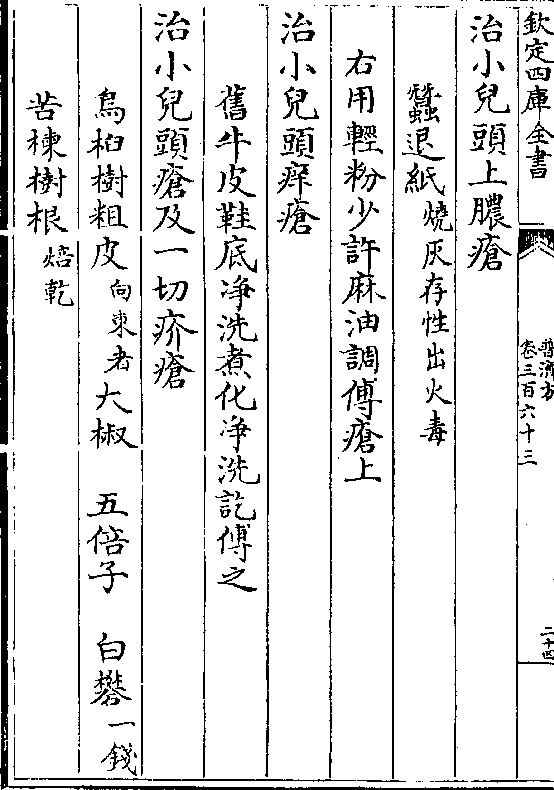 欽定四庫全書
普濟方
卷三百六十三
二十四
治小兒頭上膿瘡
蠶退紙燒灰存性出火毒
右用輕粉少許麻油調傅瘡上
治小兒頭痒瘡
舊牛皮鞋底淨洗煮化淨洗訖傅之
治小兒頭瘡及一切疥瘡
烏桕樹粗皮向東者大椒　五倍子　白礬一錢
苦楝樹根焙乾